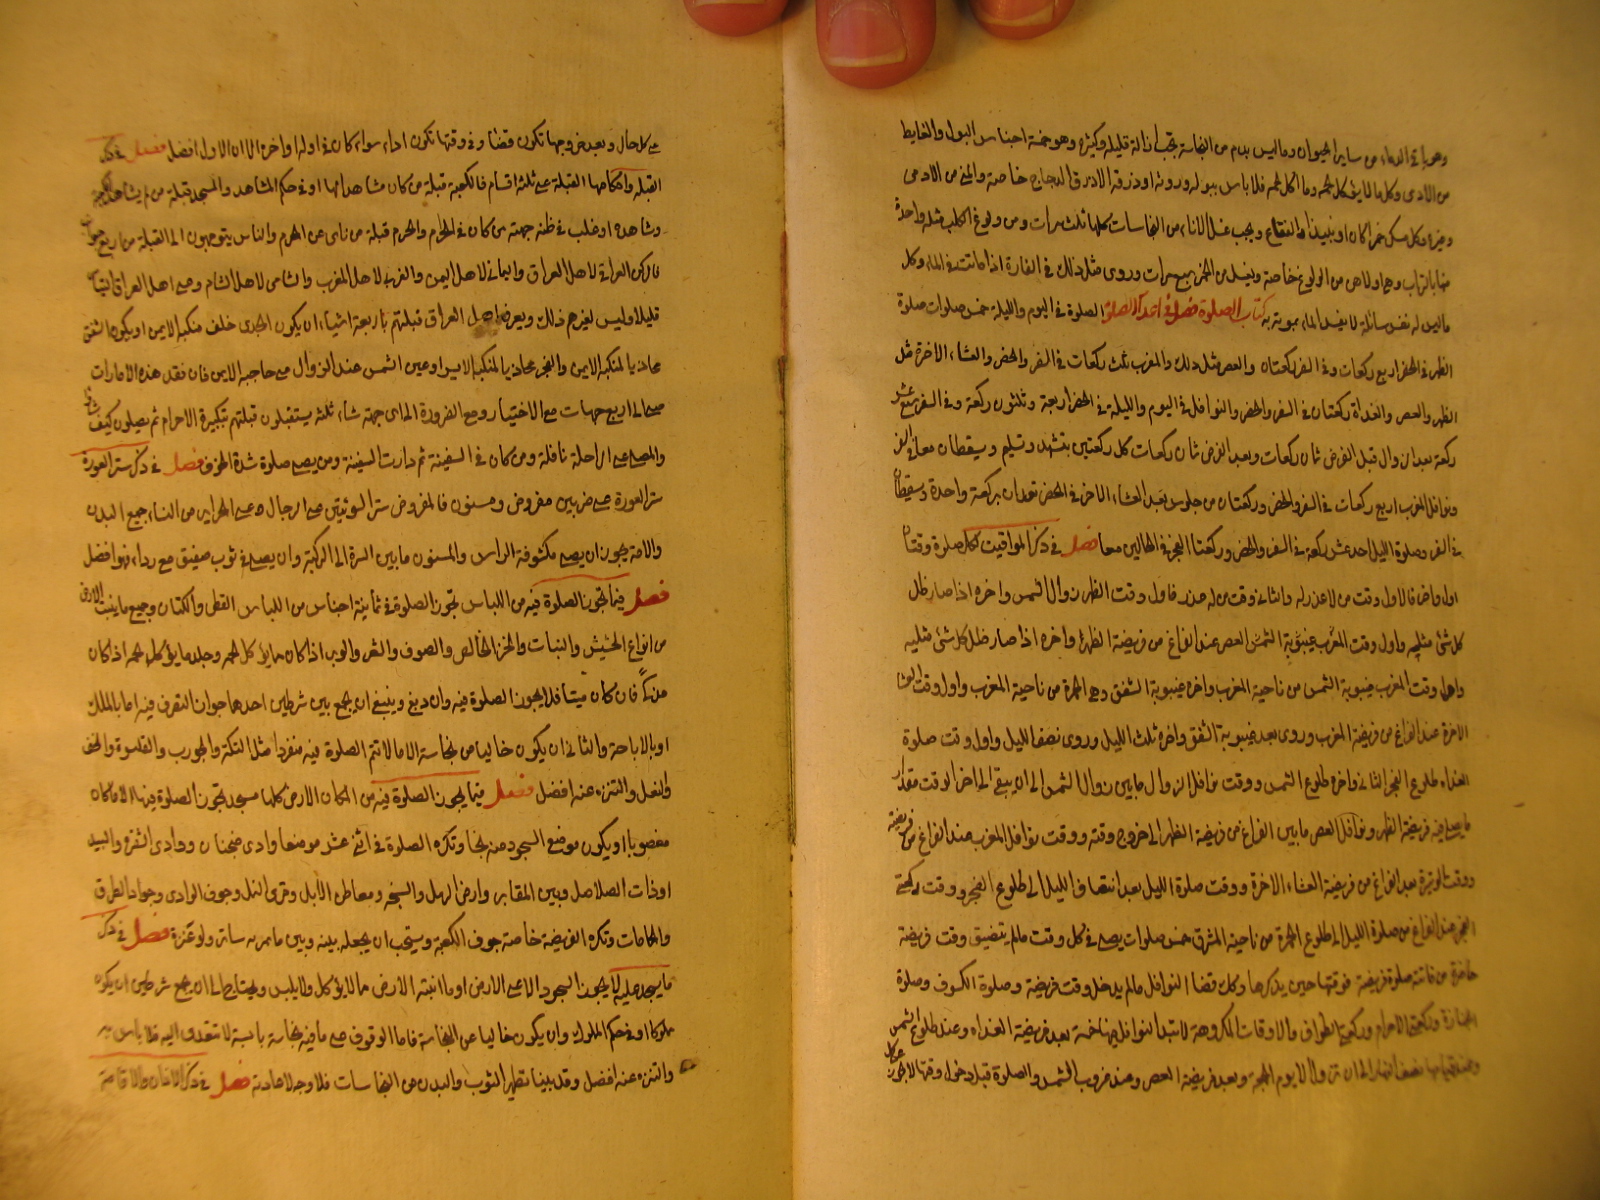 وهو باقي الدماء من ساير الحيوان وما ليس بدم من النجاسة يجب ازالة قليله وكثيره وهو خمسة اجناس البول والغايط
من الادمي وكل ما لا يؤكل لحمه وما اكل لحمه فلا باس ببوله وروثه او ذرقه الا ذرق الدجاج خاصة والمني من الادمي
وغيره وكل مسكر خمرا كان او نبيذا والفقاع ويجب غسل الاناء من النجاسات كلها ثلث مرات ومن ولوغ الكلب مثله واحدة
منها بالتراب وهي اولاهن من الولوغ خاصة ويغسل من الخمر سبع مرات وروى مثل ذلك في الفارة اذا ماتت في الماء وكل
ما ليس له نفس سائلة لا يفسد الماء بموته به كتاب الصلوة فصل في اعداد الصلوة الصلوة في اليوم والليلة خمس صلوات صلوة
الظهر في الحضر اربع ركعات وفي السفر ركعتان والعصر مثل ذلك والمغرب ثلث ركعات في السفر والحضر والعشاء الاخرة مثل
الظهر والعصر والغداة ركعتان في السفر والحضر والنوافل في اليوم والليلة في الحضر اربعة وثلثون ركعة وفي السفر سبع عشر
ركعة بعد الزوال قبل الفرض ثمان ركعات وبعد الفرض ثمان ركعات كل ركعتين بتشهد وتسليم ويسقطان معا في السفر
ونوافل المغرب اربع ركعات في السفر والحضر وركعتان من جلوس بعد العشاء الاخر في الحضر تعدان بركعة واحدة وسقطان
في السفر وصلوة الليل احد عشر ركعة في السفر والحضر وركعتا الفجر في الحالين معا فصل في ذكر المواقيت لكل صلوة وقتان
اول واخر فالاول وقت من لا عذر له والثاني وقت من له عذر فاول وقت الظهر زوال الشمس واخره اذا صار ظل
كل شئ مثليه واول وقت العصر عند الفراغ من فريضة الظهر واخره اذا صار ظل كل شئ مثليه
واول وقت المغرب غيبوبة الشمس من ناحية المغرب واخره غيبوبة الشفق وهي الحمرة من ناحية المغرب واول وقت العشا
الاخرة عند الفراغ من فريضة المغرب وروى بعد غيبوبة الشفق واخره ثلث الليل وروى نصف الليل واول وقت صلوة
الغداة طلوع الفجر الثاني واخره طلوع الشمس ووقت نوافل الزوال ما بين زوال الشمس الى ان يبقى الى اخر الوقت مقدار
ما يصلي فيه فريضة الظهر ونوافل العصر ما بين الفراغ من فريضة الظهر الى خروج وقته ووقت نوافل المغرب عند الفراغ من فريضته
ووقت الوتيرة بعد الفراغ من فريضة العشاء الاخرة ووقت صلوة الليل بعد انتصاف الليل الى طلوع الفجر ووقت ركعتي
الفجر عند الفراغ من صلوة الليل الى طلوع الحمرة من ناحية المشرق خمس صلوات يصلى في كل وقت ما لم يتضيق وقت فريضة
حاضرة من فاتته صلوة فريضة فوقتها حين يذكرها وكذلك قضا النوافل ما لم يدخل وقت فريضة وصلوة الكسوف وصلوة
الجنازة وركعتي الاحرام وركعتي الطواف والاوقات المكروهة لابتدا النوافل فيها خمسة بعد فريضة الغداة وعند طلوع الشمس
وعند قيامها نصف النهار الى ان تزول الا يوم الجمعة وبعد فريضة العصر وعند غروب الشمس والصلوة قبل دخول وقتها لا يجوز
على كل حال وبعد خروجها تكون قضاء وفي وقتها تكون اداء سواء كان في اوله او اخره الا ان الاول افضل فصل في ذكر
القبلة واحكامها القبلة على ثلثة اقسام فالكعبة قبلة من كان مشاهدا لها او في حكم المشاهد والمسجد قبلة من لم يشاهد الكعبة
وشاهده او غلب في ظنه جهته من كان في الحرم والحرم قبلة من نأى عن الحرم والناس يتوجهون الى القبلة من اربع جوانب
فالركن العراقي لاهل العراق واليماني لاهل اليمن والغربي لاهل المغرب والشامي لاهل الشام وعلى اهل العراق التياسر
قليلا وليس لغيرهم ذلك ويعرف اهل العراق قبلتهم باربعة اشياء ان يكون الجدى خلف منكبه الايمن او يكون الشفق
محاذيا لمنكبه الايمن والفجر محاذيا لمنكبه الايسر او عين الشمس عند الزوال على حاجبه الايمن فان فقد هذه الامارات
صلى الى اربع جهات مع الاختيار ومع الضرورة الى اى جهة شاء ثلثة يستقبلون قبلتهم بتكبيرة الاحرام ثم يصلون كيف شاؤا
والمصلي على الراحلة نافلة ومن كان في السفينة ثم دارت السفينة ومن يصلى صلوة شدة الخوف فصل في ذكر ستر العورة
ستر العورة على ضربين مفروض ومسنون فالمفروض ستر السوئتين على الرجال وعلى الحراير من النساء جميع البدن
والامة يجوز ان يصلى مكشوفة الراس والمسنون ما بين السرة الى الركبة وان يصلى في ثوب صفيق مع رداء فهو افضل
فصل فيما تجوز الصلوة فيه من اللباس تجوز الصلوة في ثمانية اجناس من اللباس القطن والكتان وجميع ما ينبت الارض
من انواع الحشيش والنبات والخز الخالص والصوف والشعر والوبر اذا كان مما يؤكل لحمه وجلد ما يؤكل لحمه اذا كان
مذكى فان كان ميتا فلا يجوز الصلوة فيه وان دبغ وينبغي ان يجمع بين شرطين احدهما جواز التصرف فيه اما بالملك
او بالاباحة والثاني ان يكون خاليا من نجاسة الا ما لا تتم الصلوة فيه منفردا مثل التكة والجورب والقلنسوة والخف
والنعل والتنزه عنه افضل فصل فيما يجوز الصلوة فيه من المكان الارض كلها مسجد تجوز الصلوة فيها الا ما كان
مغصوبا او يكون موضع السجود منه نجسا وتكره الصلوة في اثني عشر موضعا وادى ضجنان ووادى الشقرة والبيدا
او ذات الصلاصل وبين المقابر وارض الرمل والسبخة ومعاطن الابل وقرى النمل وجوف الوادى وجواد الطرق
والحمامات وتكره الفريضة خاصة جوف الكعبة ويستحب ان يجعل بينه وبين ما يمر به ساتر ولو عنزة فصل في ذكر
ما يسجد عليه لا يجوز السجود الا على الارض او ما انبتته الارض مما لا يؤكل ولا يلبس ويحتاج الى ان يجمع شرطين ان يكون
ملوكا او في حكم المملوك وان يكون خاليا عن النجاسة فاما الوقوف على ما فيه نجاسة يابسة لا تتعدى اليه فلا باس به
والتنزه عنه افضل وقد بينا تطهير الثوب والبدن من النجاسات فلا وجه لاعادته فصل في ذكر الاذان والاقامة